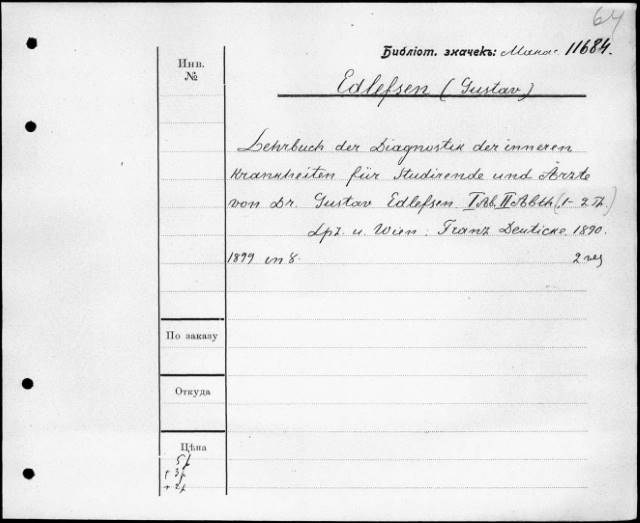 64
Библіот. значекъ: Манас. 11684.
Инв.
№
Edlefsen (Gustav)
Lehrbuch der Diagnostik der inneren
Krankheiten für Studirende und Ärzte
von Dr. Gustav Edlefsen I Ab. II Abth (1-2 Th.)
Lpz. u. Wien: Franz Deuticke. 1890.
1899 in 8. 2
По заказу
Откуда
Цѣна
5р
+ 3р
+ 2р